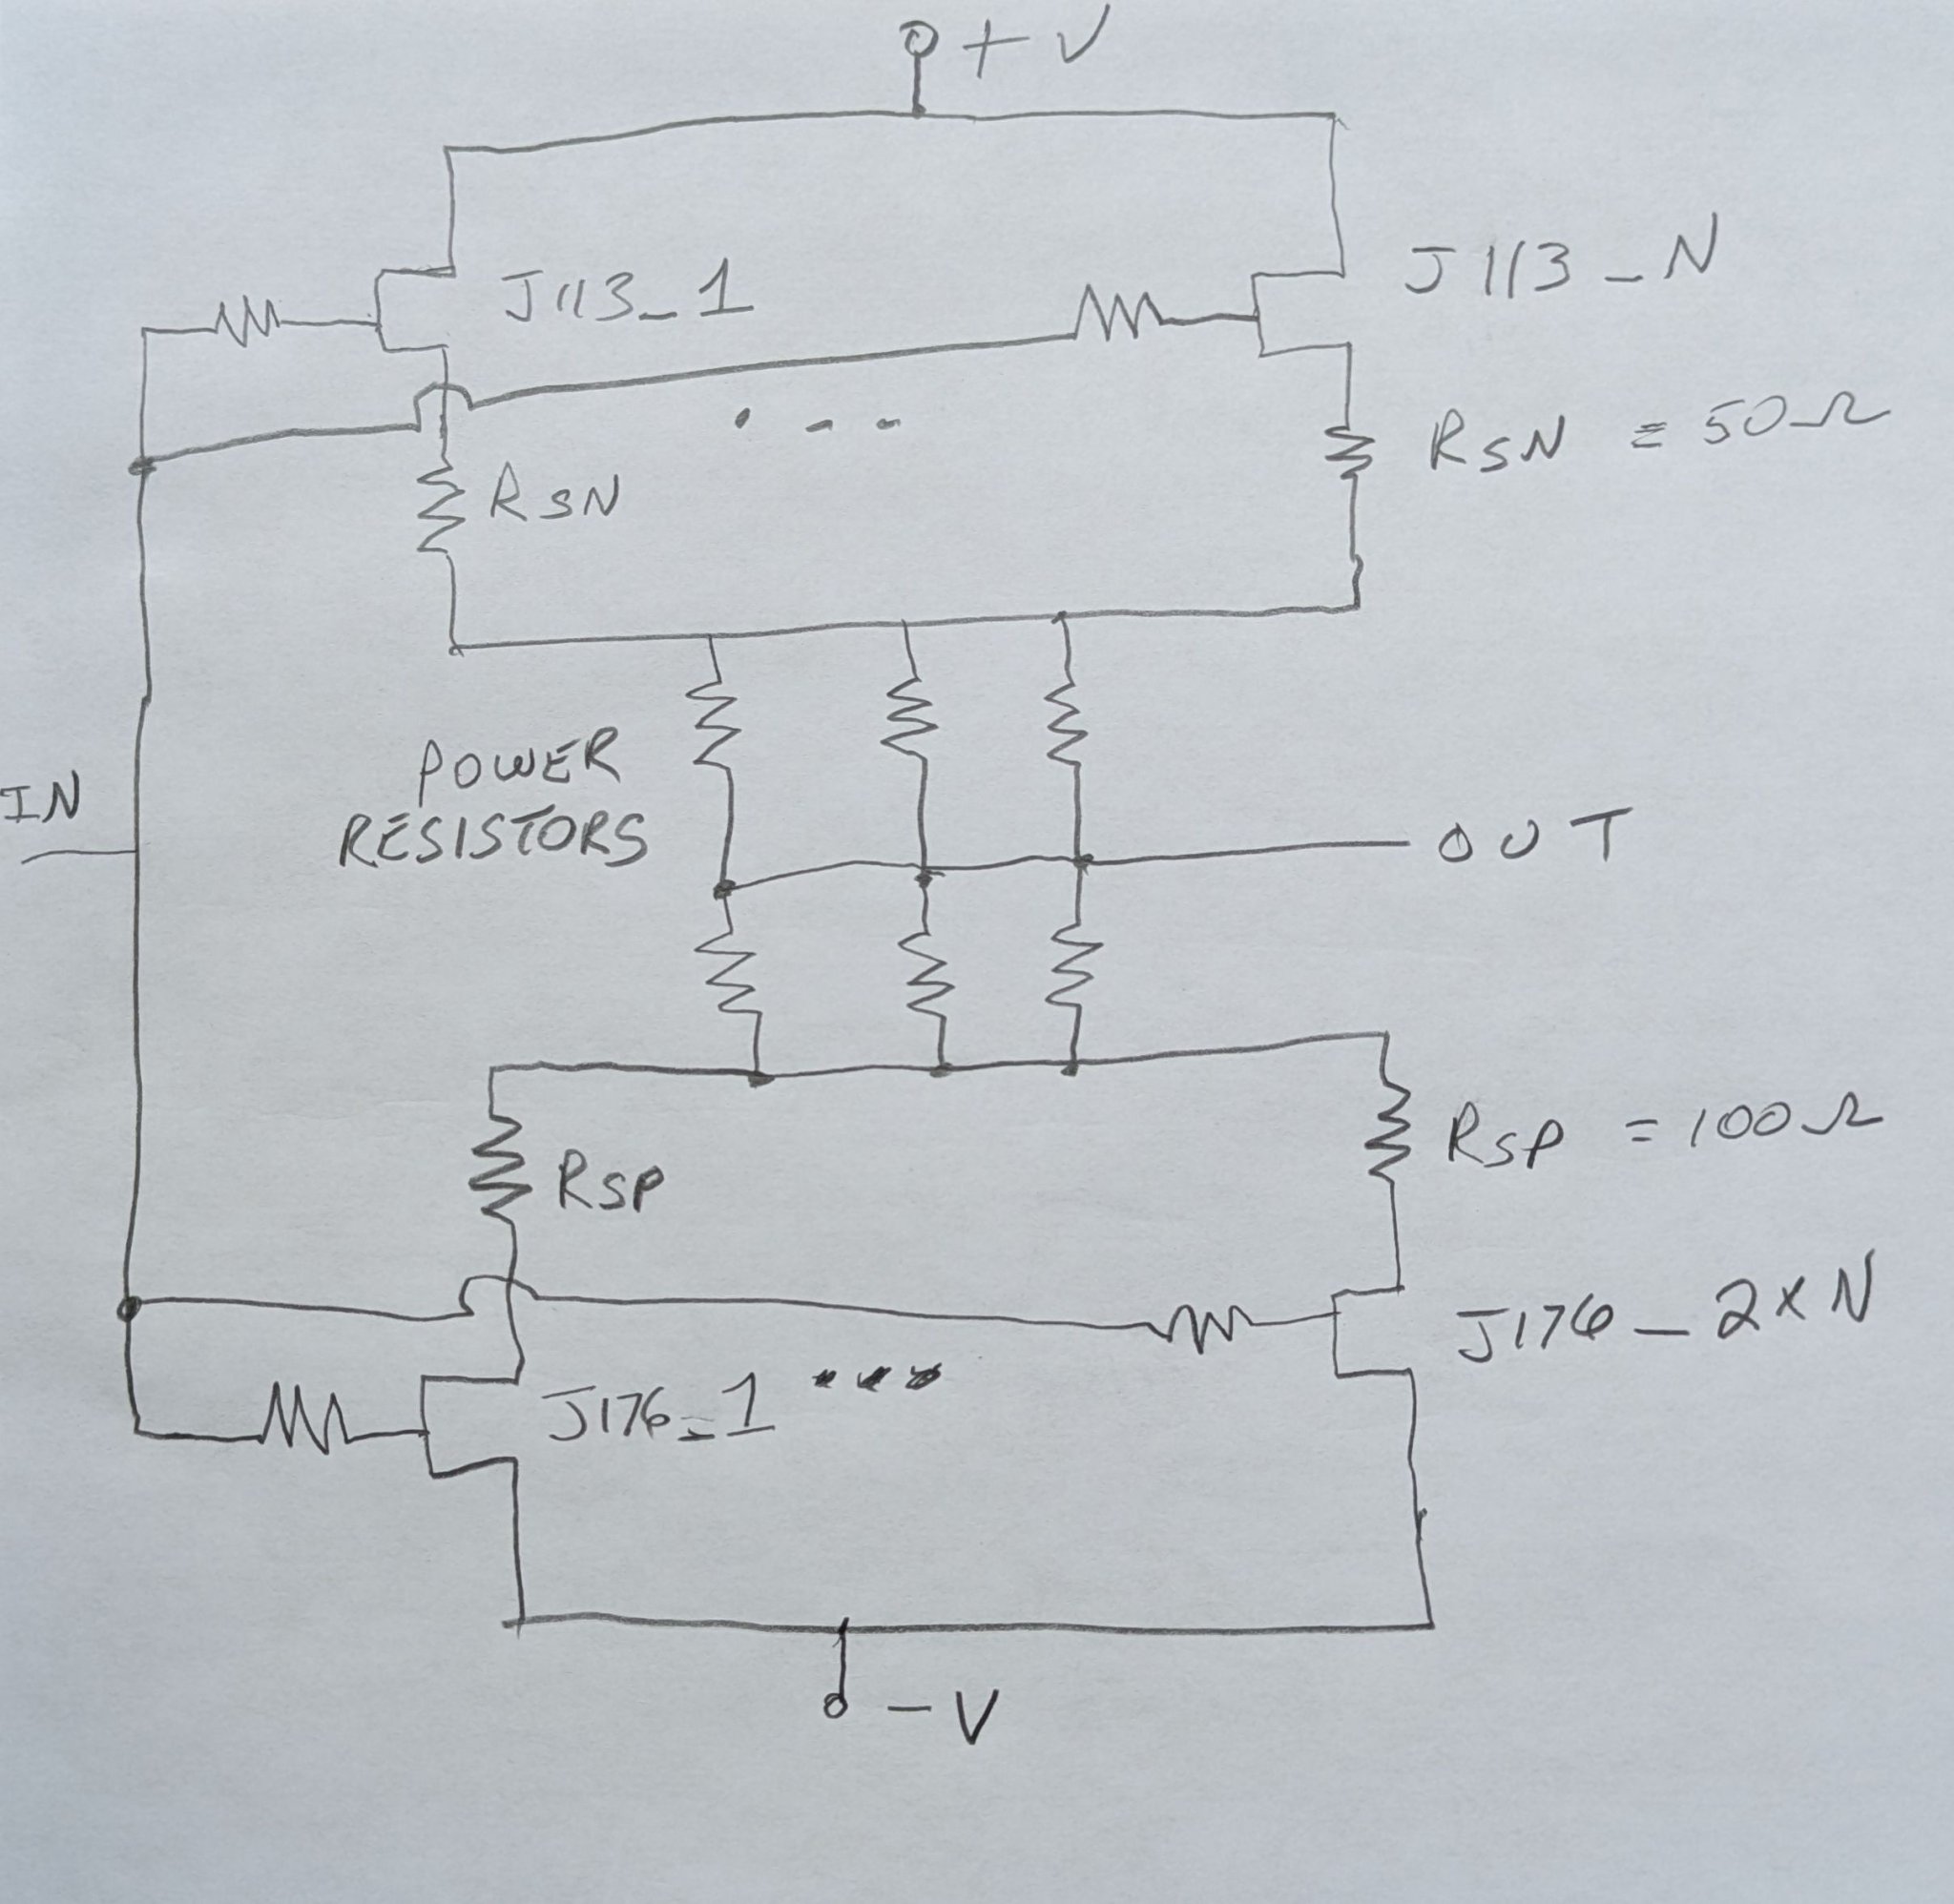 +V
J113_1
J113_N
RSN = 50Ω
RSN
POWER
RESISTORS
IN
OUT
RSP = 100Ω
RSP
J176_2×N
J176_1
-V